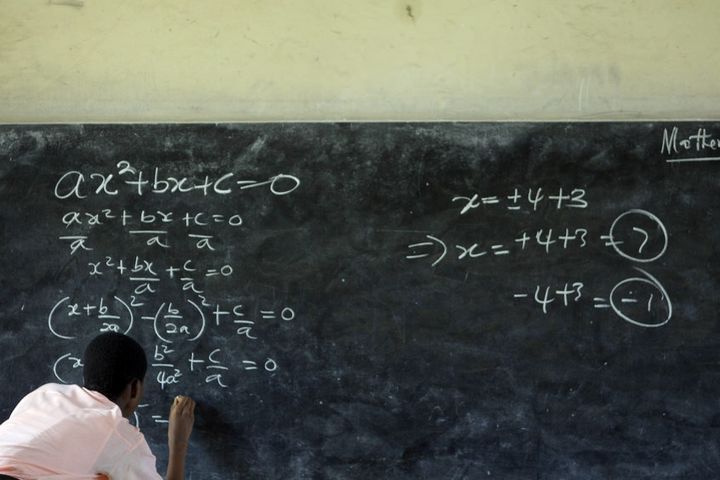 ax²+bx+c=0
ax²/a + bx/a + c/a = 0
x²+bx/a+c/a=0
(x+b/2a)²-(b/2a)²+c/a=0
(x b²/4a²+c/a=0
=
x=±4+3
⇒ x=+4+3=7
-4+3=-1